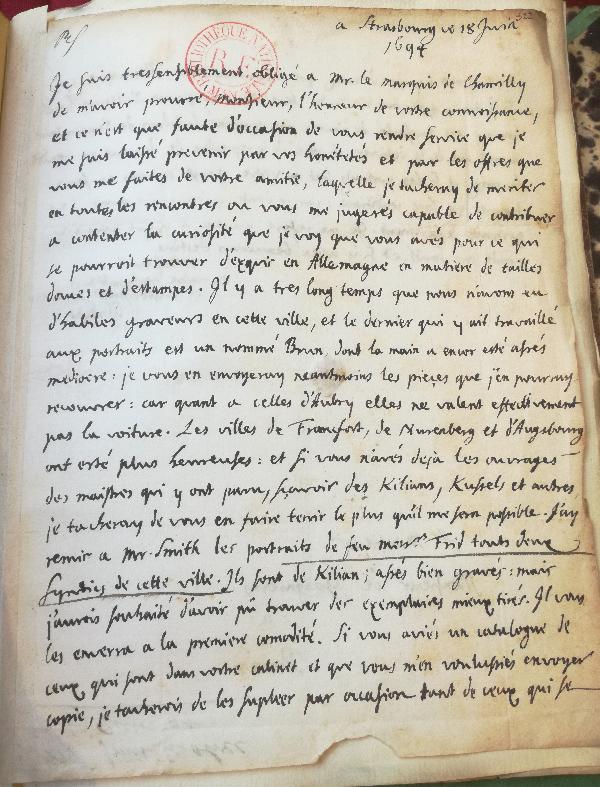 322
a Strasbourg ce 18 Juin
1694
BIBLIOTHÈQUE NATIONALE
R.F.
Je suis tressensiblement obligé a Mr. le marquis de Chamilly
de m'avoir procuré, monsieur, l'honneur de vostre connoissance,
et ce n'est que faute d'occasion de vous rendre service que je
me suis laissé prevenir par vos honétetés et par les offres que
vous me faites de vostre amitié, laquelle je tacheray de meriter
en toutes les rencontres ou vous me jugerés capable de contribuer
a contenter la curiosité que je voy que vous avés pour ce qui
se pourroit trouver d'exquis en Allemagne en matiere de tailles
douces et d'estampes. Il y a tres long temps que nous n'avons eu
d'habiles graveurs en cette ville, et le dernier qui y ait travaillé
aux portraits est un nommé Brun, dont la main a encor esté assés
mediocre: je vous en envoyeray neantmoins les pieces que j'en pourray
recouvrer: car quant a celles d'Aubry elles ne valent effectivement
pas la voiture. Les villes de Francfort, de Nurenberg et d'Augsbourg
ont esté plus heureuses: et si vous n'avés dejà les ouvrages
des maistres qui y ont paru, sçavoir des Kilians, Kussels et autres,
je tacheray de vous en faire tenir le plus qu'il me sera possible. J'ay
remis a Mr. Smith les portraits de feu mess.rs Frid touts deux
Syndics de cette ville. Ils sont de Kilian; assés bien gravés: mais
j'aurois souhaité d'avoir pû trouver des exemplaires mieux tirés. Il vous
les enverra a la premiere comodité. Si vous aviés un catalogue de
ceux qui sont dans vostre cabinet et que vous m'en voulussiés envoyer
copie, je tacherois de les supleer par occasion tant de ceux qui se